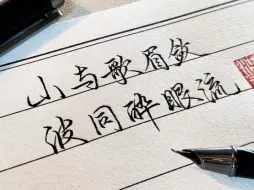 山与歌眉敛
波同醉眼流